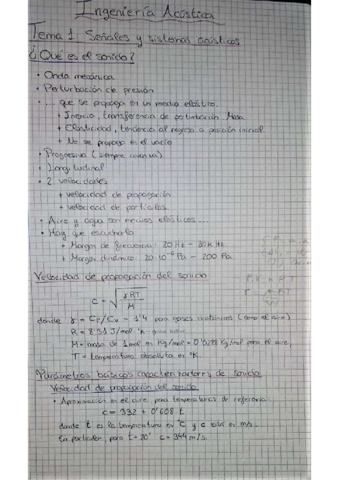 Ingeniería Acústica
Tema 1 Señales y sistemas acústicos
¿Qué es el sonido?
• Onda mecánica
• Perturbación de presión
• ... que se propaga en un medio elástico.
+ Inercia, transferencia de perturbación. Masa
+ Elasticidad, tendencia al regreso a posición inicial
+ No se propaga en el vacío
• Progresiva (siempre avanza)
• Longitudinal
• 2 velocidades
+ velocidad de propagación
+ velocidad de partículas
• Aire y agua son medios elásticos...
• Hay que escucharlo
+ Margen de frecuencia: 20 Hz - 20 KHz
+ Margen dinámico: 20·10⁻⁶ Pa - 200 Pa.
Velocidad de propagación del sonido
c = √(γRT/M)
donde γ = Cp/Cv = 1'4 para gases diatómicos (como el aire)
R = 8'31 J/mol °K
M = masa de 1 mol en Kg/mol = Kg/mol para el aire,
T = temperatura absoluta en °K.
Parámetros básicos caracterizadores de sonido
Velocidad de propagación del sonido
• Aproximación en el aire para temperaturas de referencia
c = 332 + 0'608 t
donde t es la temperatura en °C y c está en m/s.
En particular, para t = 20° c = 344 m/s.